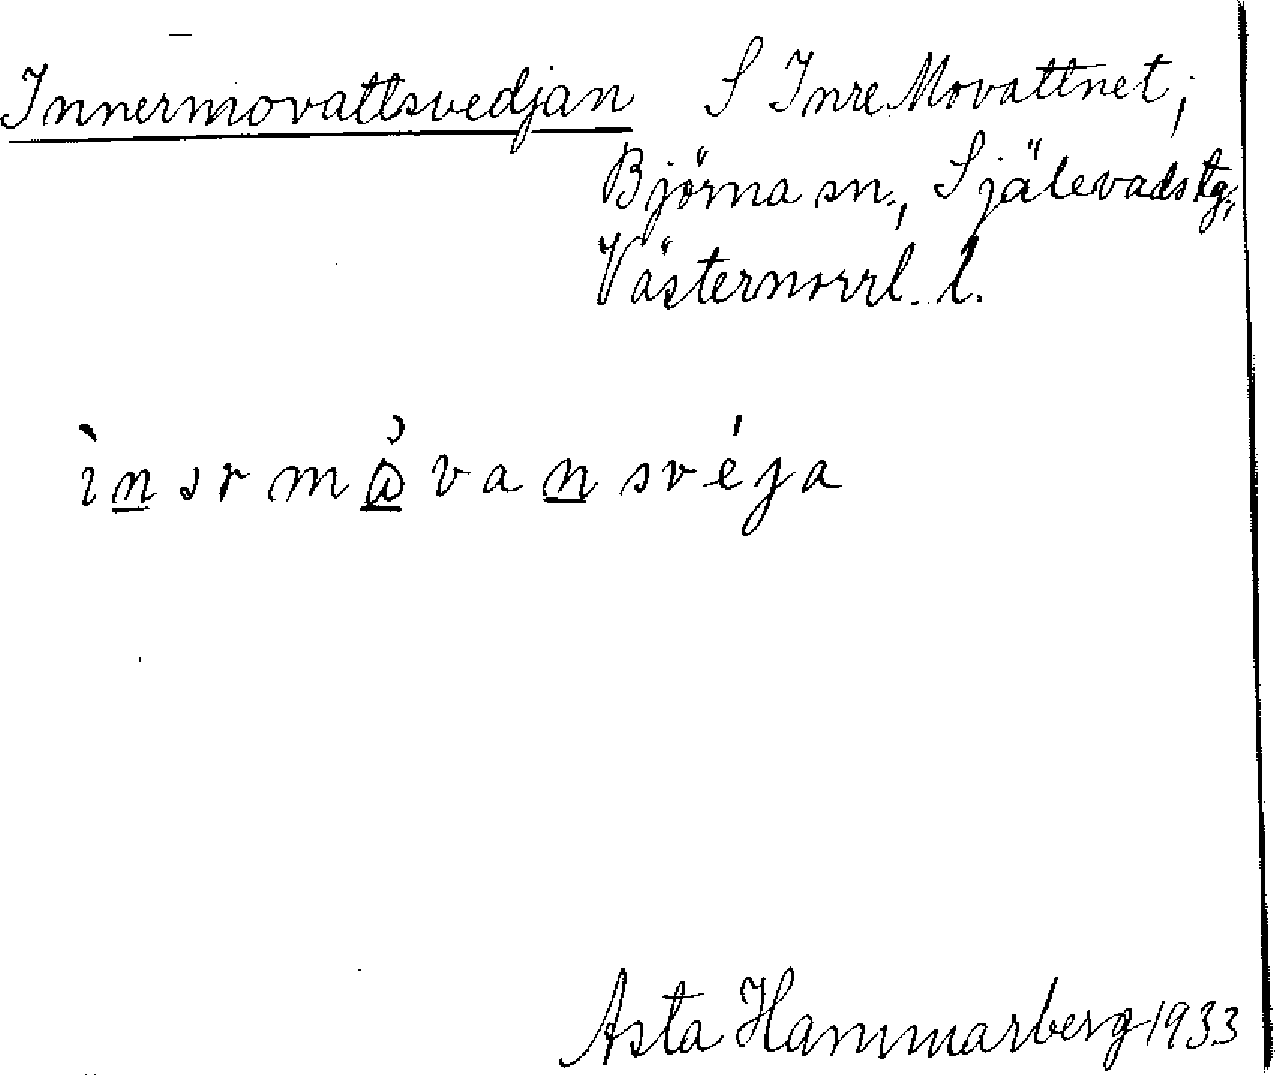 Innermovattsvedjan S Inre Movattnet;
Björna sn., Själevads tg.,
Västernorrl. l.
ìnərmåvansvéja
Asta Hammarberg 1933